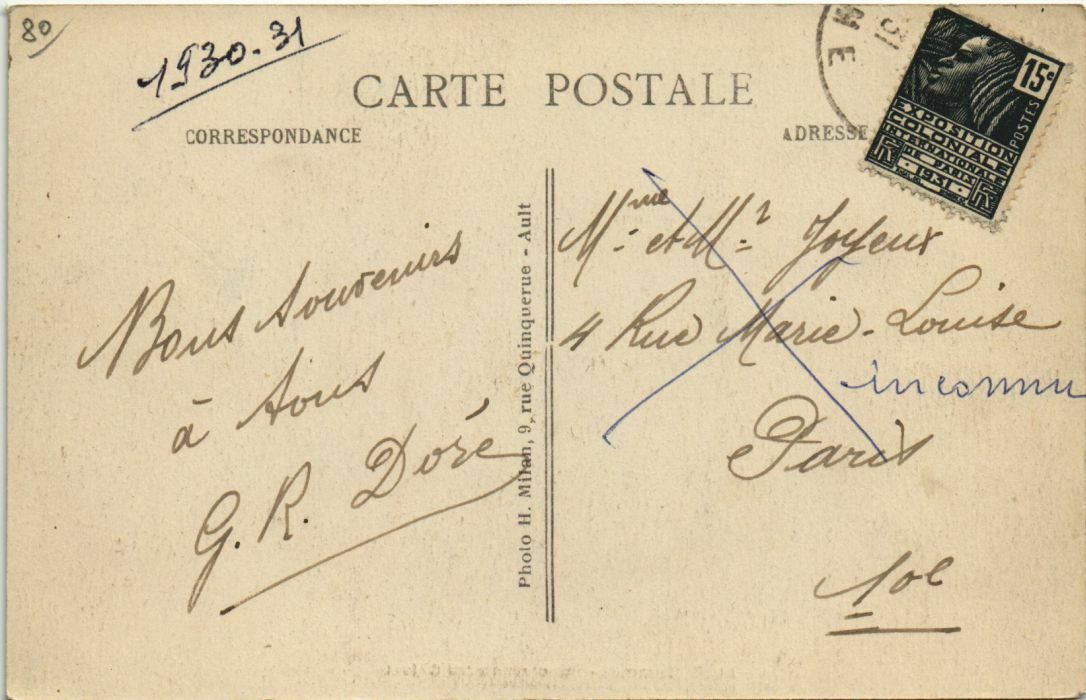 80
1930-31
CARTE POSTALE
CORRESPONDANCE
ADRESSE
M
E
31
15c
POSTES
EXPOSITION
COLONIALE
INTERNATIONALE
DE PARIS
1931
Bons souvenirs
à tous
G. R. Doré
Photo H. Milan, 9, rue Quinquerue - Ault
Mme et Mr Joyeux
4 Rue Marie-Louise
inconnu
Paris
10e